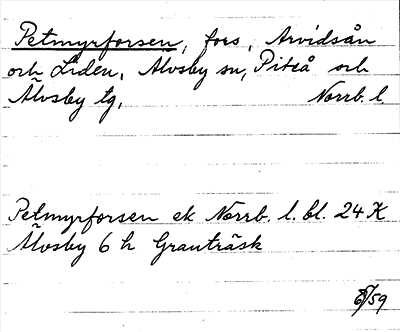 Petmyrforsen, fors, Arvidsån
och Liden, Älvsby sn, Piteå och
Älvsby tg, Norrb. l.
Petmyrforsen ek Norrb. l. bl. 24 K
Älvsby 6 h Granträsk